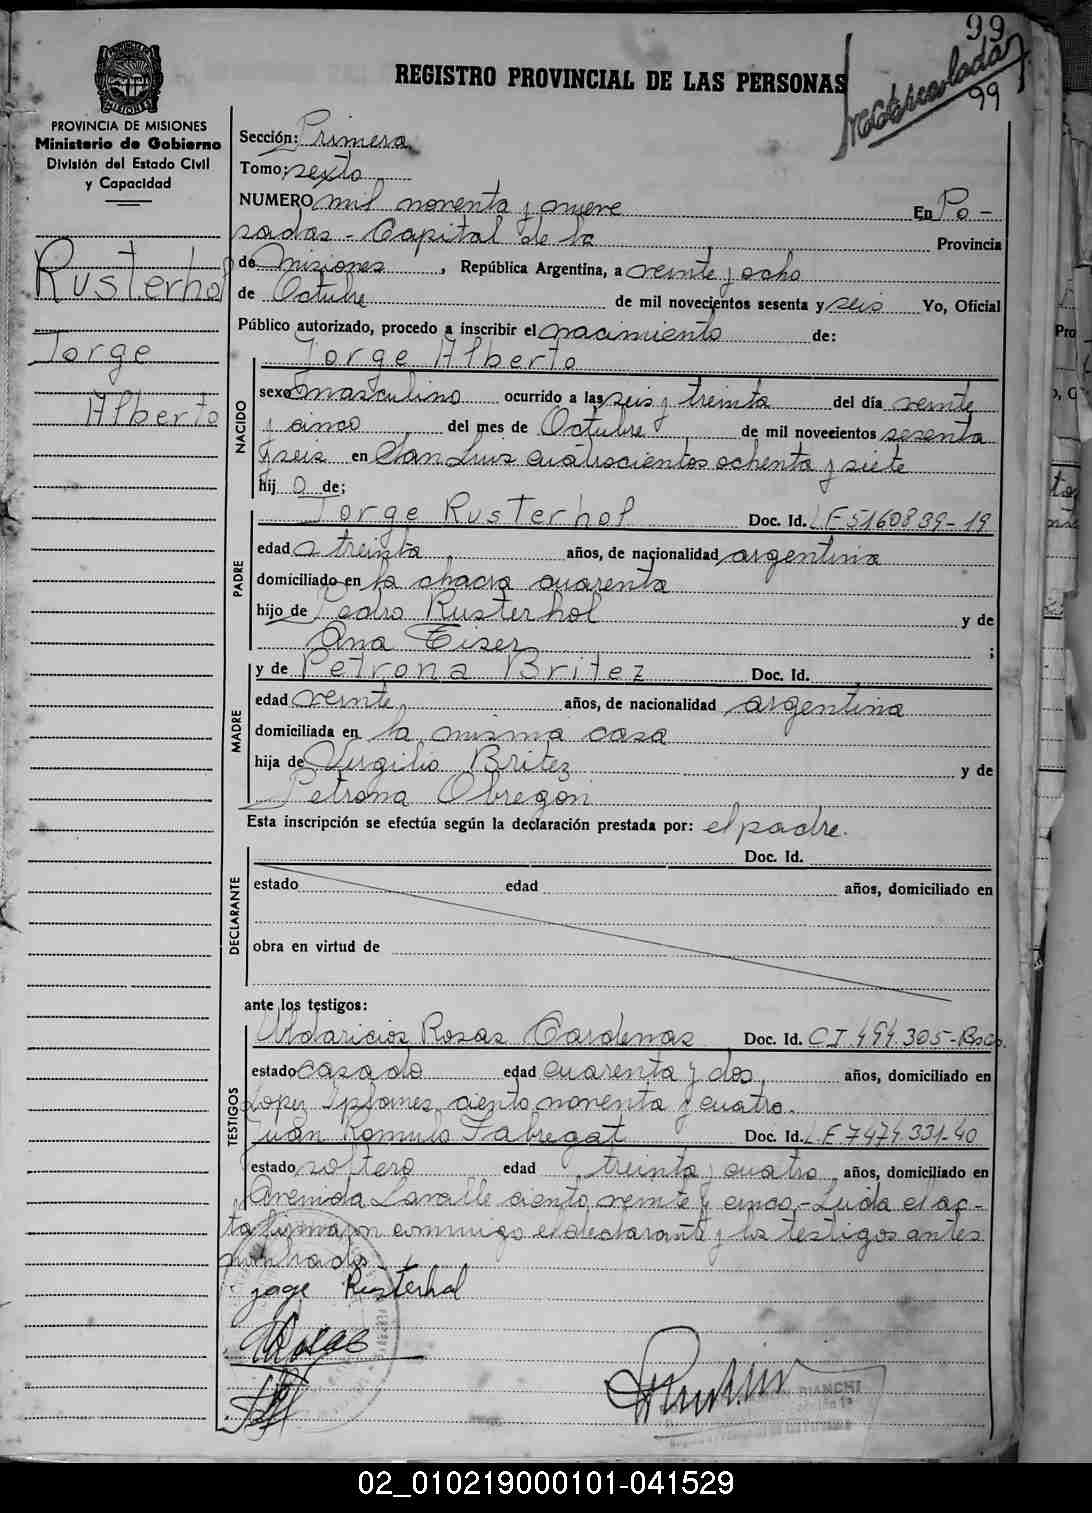 99
REGISTRO PROVINCIAL DE LAS PERSONAS
99
PROVINCIA DE MISIONES
Ministerio de Gobierno
División del Estado Civil
y Capacidad
Rusterhol
Jorge
Alberto
Sección: Primera
Tomo: sexto
NUMERO mil noventa y nueve En Po-
sadas - Capital de la Provincia
de Misiones, República Argentina, a veinte y ocho
de Octubre de mil novecientos sesenta y seis Yo, Oficial
Público autorizado, procedo a inscribir el nacimiento de:
Jorge Alberto
NACIDO
sexo masculino ocurrido a las seis y treinta del día veinte
y cinco del mes de Octubre de mil novecientos sesenta
y seis en San Luis cuatrocientos ochenta y siete
hij o de;
PADRE
Jorge Rusterhol Doc. Id. LE 5160839-19
edad treinta años, de nacionalidad argentina
domiciliado en la chacra cuarenta
hijo de Pedro Rusterhol y de
Ana Tiser ;
MADRE
y de Petrona Britez Doc. Id.
edad veinte años, de nacionalidad argentina
domiciliada en la misma casa
hija de Virgilio Britez y de
Petrona Obregon
Esta inscripción se efectúa según la declaración prestada por: el padre.
DECLARANTE
Doc. Id.
estado edad años, domiciliado en
obra en virtud de
ante los testigos:
TESTIGOS
Rosas Cardenas Doc. Id. CI.494.305-
estado casado edad cuarenta y dos años, domiciliado en
Lopez ciento noventa y cuatro.
Juan Romulo Fabregat Doc. Id. L.E.7474.331-40
estado soltero edad treinta y cuatro años, domiciliado en
Avenida Lavalle ciento veinte y cinco.- Leida el ac-
ta firmaron conmigo el declarante y los testigos antes
nombrados.
Jorge Rusterhol
Rosas
BIANCHI
02_010219000101-041529